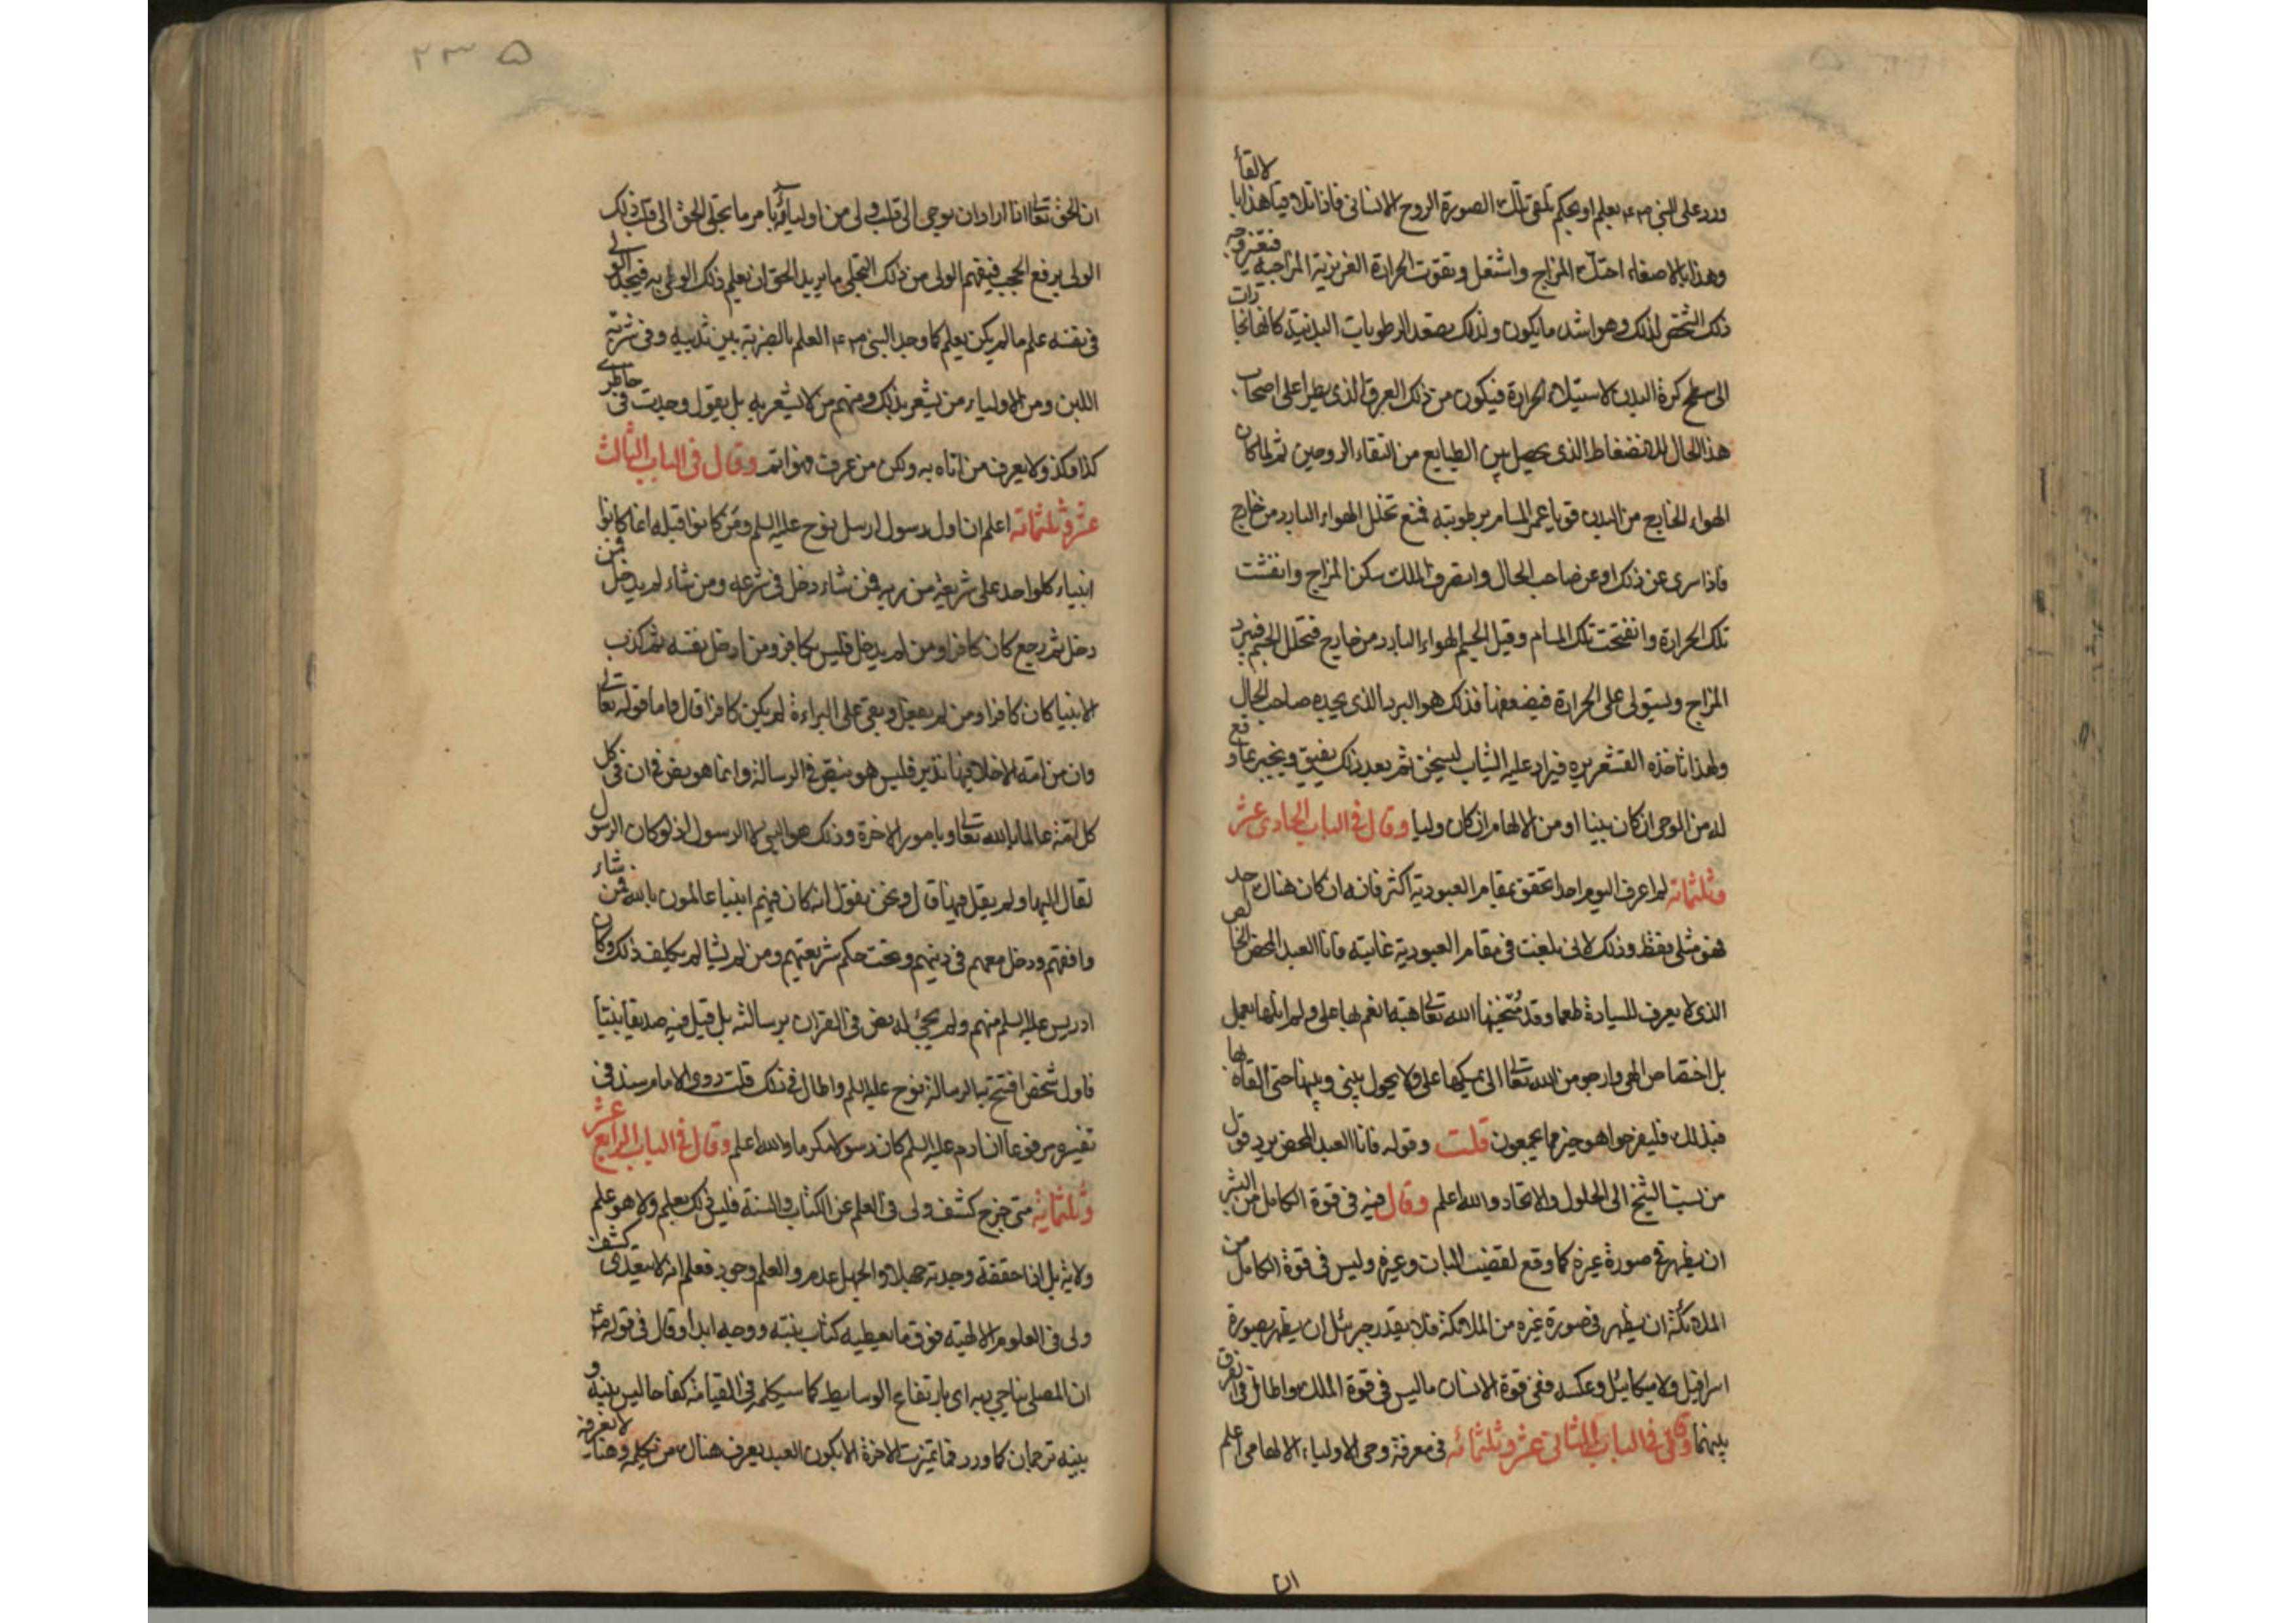 ورد على النبى صلعم بعلم او بحكم تلقى تلك الصورة الروح الانسانى فاذا تلاقيا هذا بالالقأ
وهذا بالاصغاء احتد المزاج واشتعل وتقوت الحرارة الغريزية المزاجية فتغير وجه
ذلك الشخص لذلك وهو اشد ما يكون ولذلك تصعد الرطوبات البدنية كانها بخارات
الى سطح كرة البدن لاستيلاء الحرارة فيكون من ذلك العرق الذى يطرا على اصحاب
هذا الحال للانضغاط الذى يحصل بين الطبايع من التقاء الروحين ثم لما كان
الهواء الخارج من البدن قويا غمر المسام برطوبته فمنع تخلل الهواء البارد من خارج
فاذا سرى عن ذلك او عن صاحب الحال وانصرف الملك سكن المزاج وانفشت
تلك الحرارة وانفتحت تلك المسام وقبل الجسم الهواء البارد من خارج فتخلل الجسم فيبرد
المزاج ويستولى على الحرارة فيضعفها فذلك هو البرد الذى يجده صاحب الحال
ولهذا تاخذه القشعريره فيزاد عليه الثياب ليسخن ثم بعد ذلك يفيق ويخبر عما وقع
له من الوحى ان كان نبيا او من الالهام ان كان وليا وقال فى الباب الحادى عشر
وثلثمائه لم اعرف اليوم احدا تحقق بمقام العبودية اكثر فانه ان كان هناك احد
فهو مثلى فقط وذلك لانى بلغت فى مقام العبودية غايته فانا العبد المحض الخالص
الذى لا يعرف للسيادة طعما وقد منحنيها الله تعالى هبة انعم بها على ولم انلها بعمل
بل اختصاص الهى وارجو من الله تعالى ان يمسكها على ولا يحول بينى وبينها حتى القاه بها
فبذلك فليفرحوا هو خير مما يجمعون قلت وقوله فانا العبد المحض يرد قول
من نسب الشيخ الى الحلول والاتحاد والله اعلم وقال فيه فى قوة الكامل من البشر
ان يظهر فى صورة غيره كما وقع لقضيب البان وغيره وليس فى قوة الكامل من
الملائكة ان يظهر فى صورة غيره من الملائكة فلا يقدر جبرئل ان يظهر بصورة
اسرافيل ولا ميكائيل وعكسه ففى قوة الانسان ما ليس فى قوة الملك واطال فى الفرق
بينهما وقال فى الباب الثانى عشر وثلثمائه فى معرفة وحى الاولياء الالهامى اعلم
ان
٢٣٥
ان الحق تعالى اذا اراد ان يوحى الى قلب ولى من اوليائه بامر ما تجلى الحق الى قلب ذلك
الولى برفع الحجب فيفهم الولى من ذلك التجلى ما يريد الحق ان يعلم ذلك الولى به فيجد الولى
فى نفسه علم ما لم يكن يعلم كما وجد النبى صلعم العلم بالضربة بين ثدييه وفى شربة
اللبن ومن الاولياء من يشعر بذلك ومنهم من لا يشعر به بل يقول وجدت فى خاطرى
كذا وكذا ولا يعرف من اتاه به ولكن من عرف فهو اتم وقال فى الباب الثالث
عشر وثلثمائه اعلم ان اول رسول ارسل نوح عليه السلم ومن كانوا قبله انما كانوا
انبياء كل واحد على شريعة من ربه فمن شاء دخل فى شرعه ومن شاء لم يدخل فمن
دخل ثم رجع كان كافرا ومن لم يدخل فليس بكافر ومن ادخل نفسه ثم كذب
الانبيا كان كافرا ومن لم يفعل وبقى على البراءة لم يكن كافرا قال واما قوله تعالى
وان من امة الا خلا فيها نذير فليس هو بنص فى الرسالة وانما هو نص فى ان فى كل
كل امة عالما بالله تعالى وبامور الاخرة وذلك هو النبى لا الرسول اذ لو كان الرسول
لقال اليها ولم يقل فيها قال ونحن نقول انه كان فيهم انبيا عالمون بالله فمن شاء
وافقهم ودخل معهم فى دينهم وتحت حكم شريعتهم ومن لم يشا لم يكلف ذلك وكان
ادريس عليه السلم منهم ولم يجئ له نص فى القران برسالته بل قيل فيه صديقا نبيا
فاول شخص افتتحت به الرسالة نوح عليه السلم واطال فى ذلك قلت روى الامام سند فى
تفسيره مرفوعا ان ادم عليه السلم كان رسولا مكرما والله اعلم وقال فى الباب الرابع عشر
وثلثمائة متى خرج كشف ولى فى العلم عن الكتاب والسنة فليس ذلك بعلم ولا هو علم
ولاية بل اذا حققته وجدته جهلا والجهل عدم والعلم وجود فعلم انه لا يتعدى كشف
ولى فى العلوم الالهية فوق ما يعطيه كتاب نبيه ووحيه ابدا وقال فى قوله صلعم
ان المصلى يناجى ربه اى بارتفاع الوسايط كما سيكلمه فى القيامة كفاحا ليس بينه و
بينه ترجمان كما ورد فما تميزت الاخرة الا بكون العبد يعرف هناك من يكلمه وهنا لا يعرفه